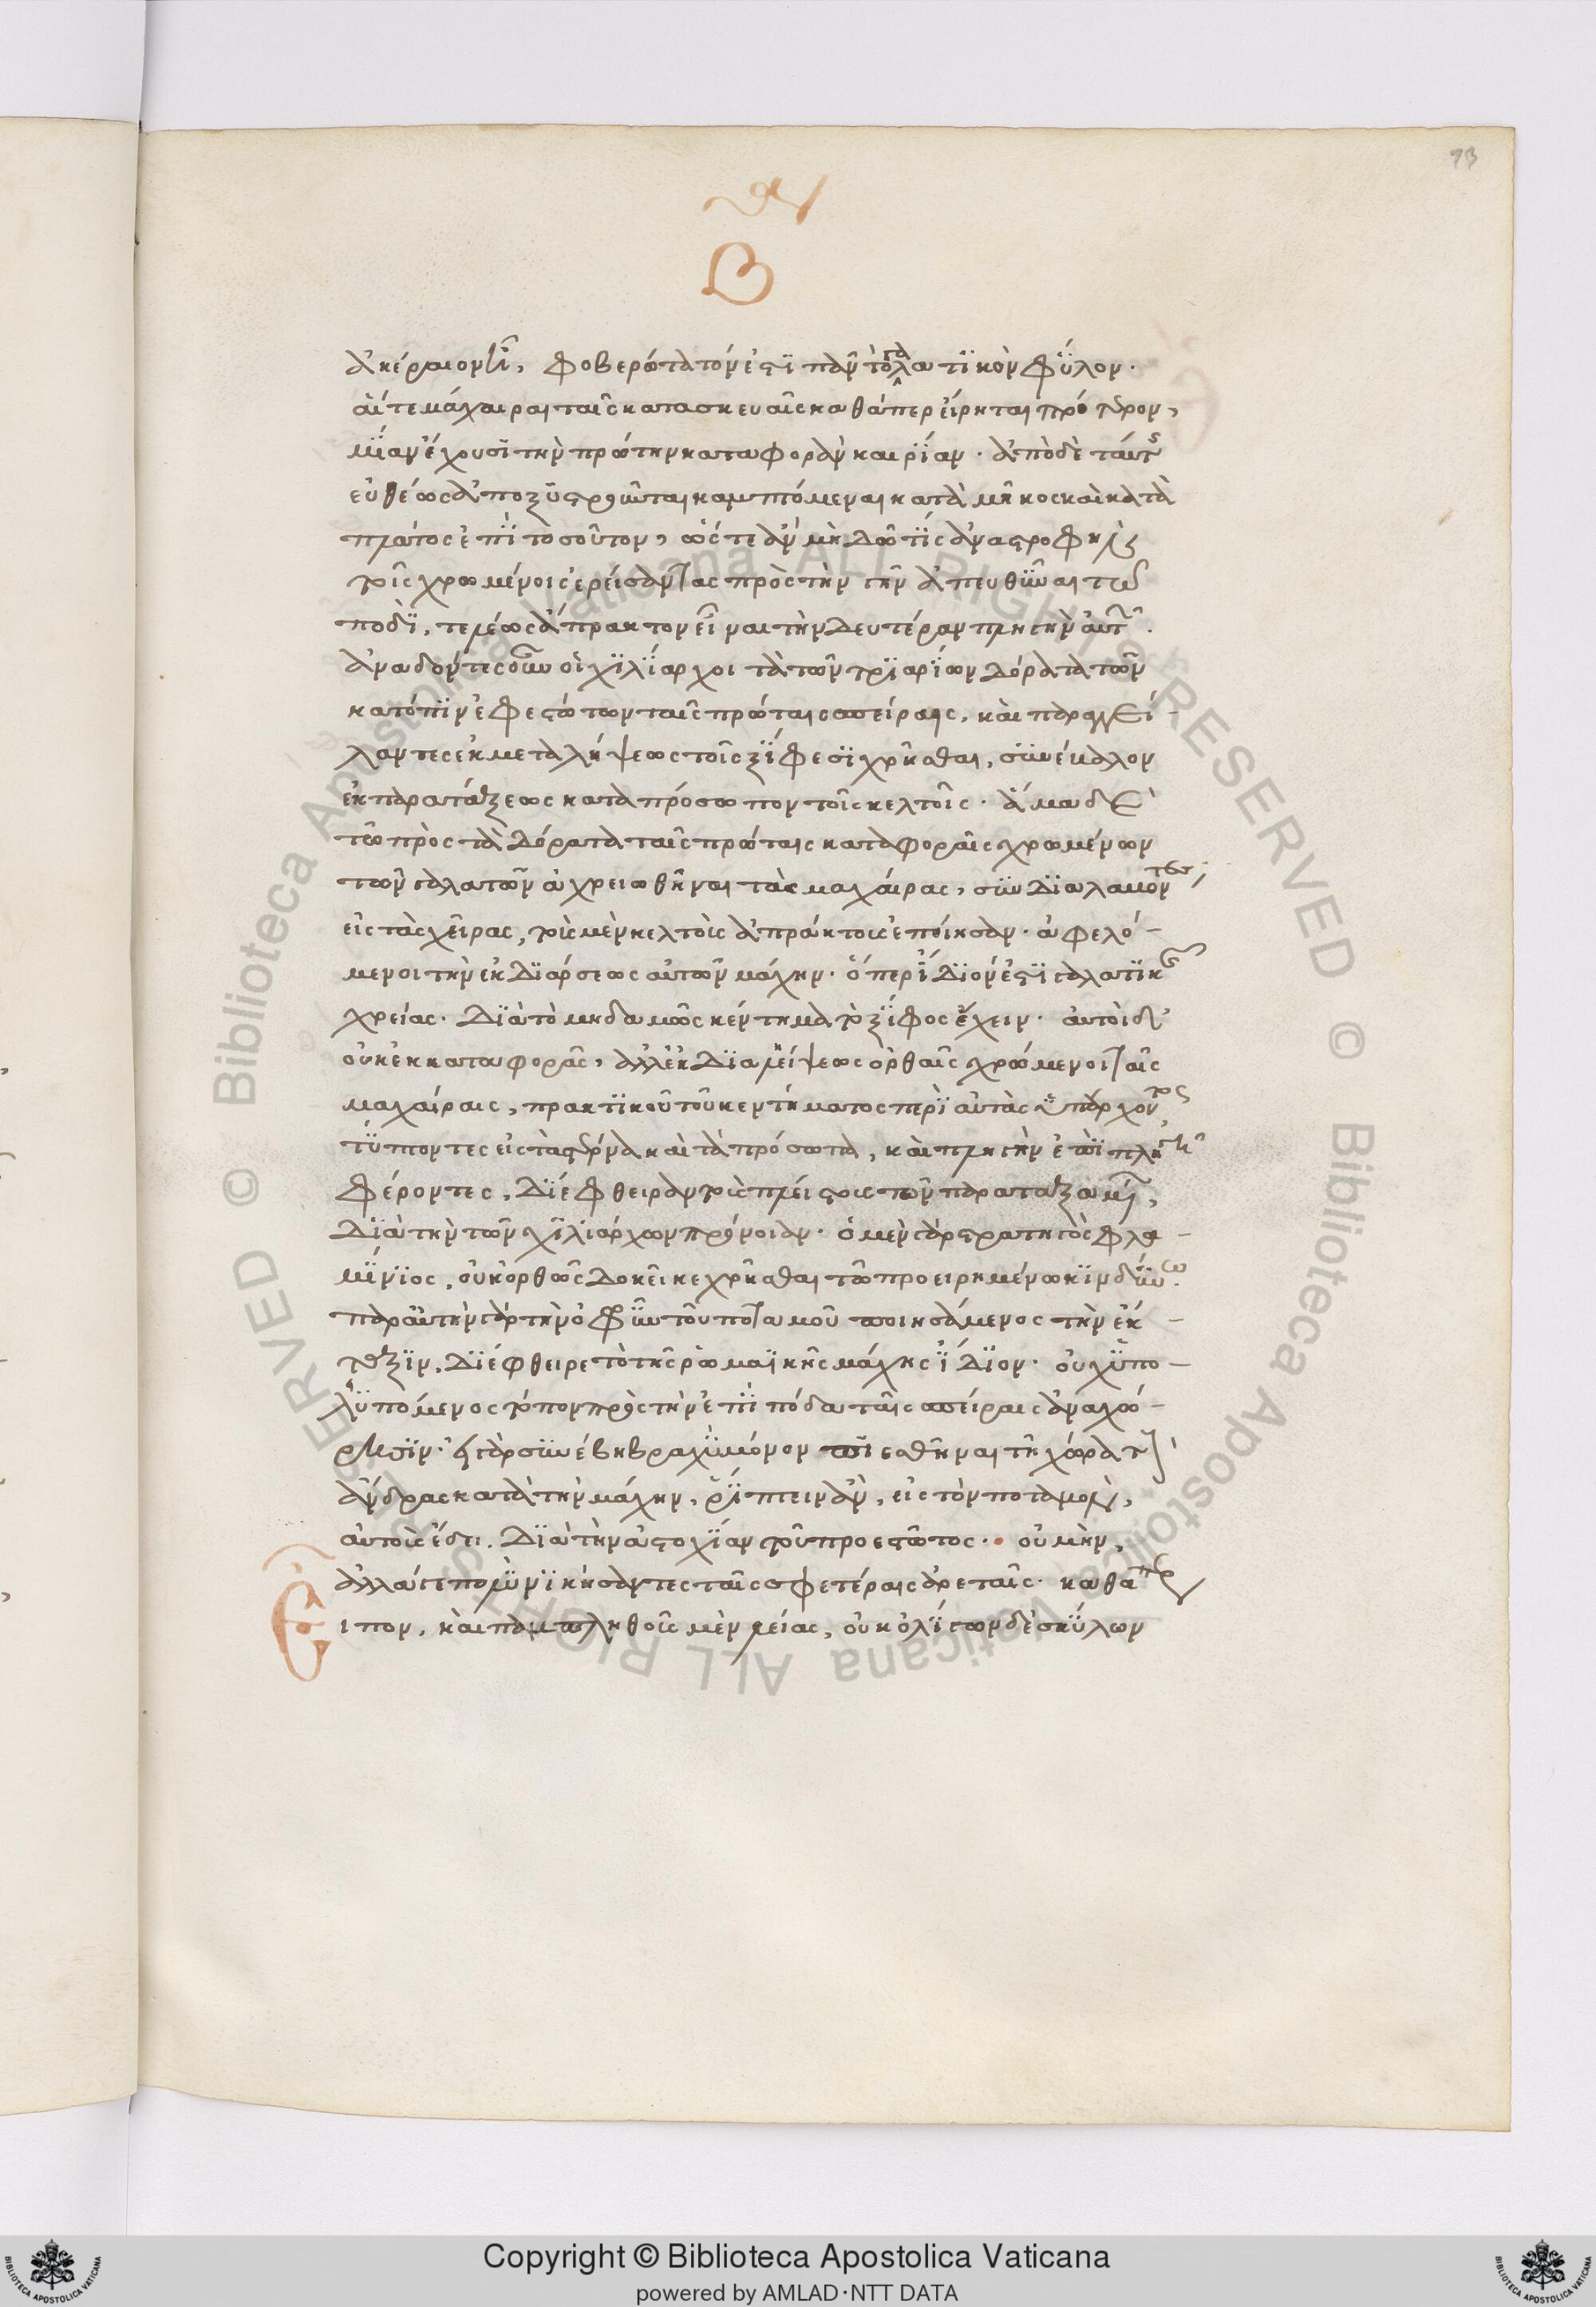 93
Β
ἀκέραιον ᾖ, φοβερώτατόν ἐστι πᾶν τὸ γαλατικὸν φῦλον·
αἵ τε μάχαιραι ταῖς κατασκευαῖς καθάπερ εἴρηται πρότερον,
μίαν ἔχουσι τὴν πρώτην καταφορὰν καιρίαν· ἀπὸ δὲ ταύτης
εὐθέως ἀποξυστροῦνται καμπτόμεναι κατὰ μῆκος καὶ κατὰ
πλάτος ἐπὶ τοσοῦτον, ὥστε ἂν μὴ δῶ τίς ἀναστροφὴν
τοῖς χρωμένοις ἐρείσαντας πρὸς τὴν γῆν ἀπευθῦναι τῶ
ποδὶ, τελέως ἄπρακτον εἶναι τὴν δευτέραν πληγὴν αὐτῶν.
ἀναδόντες οὖν οἱ χιλίαρχοι τὰ τῶν τριαρίων δόρατα τῶν
κατόπιν ἐφεστώτων ταῖς πρώταις σπείραις, καὶ παραγγεί-
λαντες ἐκ μεταλήψεως τοῖς ξίφεσι χρῆσθαι, συνέβαλον
ἐκ παρατάξεως κατὰ πρόσωπον τοῖς κελτοῖς· ἅμα δὲ
τῶ πρὸς τὰ δόρατα ταῖς πρώταις καταφοραῖς χρωμένων
τῶν γαλατῶν ἀχρειωθῆναι τὰς μαχαίρας, συνδραμόντες
εἰς τὰς χεῖρας, τοὺς μὲν κελτοὺς ἀπράκτους ἐποίησαν· ἀφελό-
μενοι τὴν ἐκ διάρσεως αὐτῶν μάχην· ὅπερ ἴδιόν ἐστι γαλατικῆς
χρείας· διὰ τὸ μηδαμῶς κέντημα τὸ ξίφος ἔχειν· αὐτοὶ δ'
οὐκ ἐκ καταφορᾶς, ἀλλ' ἐκ διαλήψεως ὀρθαῖς χρώμενοι ταῖς
μαχαίραις, πρακτικοῦ τοῦ κεντήματος περὶ αὐτὰς ὑπάρχοντος
τύπτοντες εἰς τὰ στέρνα καὶ τὰ πρόσωπα, καὶ πληγὴν ἐπὶ πληγῇ
φέροντες, διέφθειραν τοὺς πλείστους τῶν παραταξαμένων,
διὰ τὴν τῶν χιλιάρχων πρόνοιαν· ὁ μὲν γὰρ στρατηγὸς φλα-
μίνιος, οὐκ ὀρθῶς δοκεῖ κεχρῆσθαι τῶ προειρημένω κινδύνω·
παρ' αὐτὴν γὰρ τὴν ὀφρῦν τοῦ ποταμοῦ ποιησάμενος τὴν ἔκ-
ταξιν, διέφθειρε τὸ τῆς ῥωμαϊκῆς μάχης ἴδιον· οὐχ ὑπο-
λυπόμενος τόπον πρὸς τὴν ἐπὶ πόδα ταῖς σπείραις ἀναχώ-
ρησιν· εἰ γὰρ συνέβη βραχὺ μόνον πιεσθῆναι τῆ χώρα τοὺς
ἄνδρας κατὰ τὴν μάχην, ῥίπτειν ἂν, εἰς τὸν ποταμὸν,
αὐτοὺς ἔδει. διὰ τὴν ἀστοχίαν τοῦ προεστῶτος· οὐ μὴν,
ἀλλὰ γε πολὺ νικήσαντες ταῖς σφετέραις ἀρεταῖς· καθάπερ
εἶπον, καὶ παμπληθοῦς μὲν λείας, οὐκ ὀλίγων δὲ σκύλων
© Biblioteca Apostolica Vaticana ALL RIGHTS RESERVED © Biblioteca Apostolica Vaticana ALL RIGHTS RESERVED
Copyright © Biblioteca Apostolica Vaticana
powered by AMLAD·NTT DATA